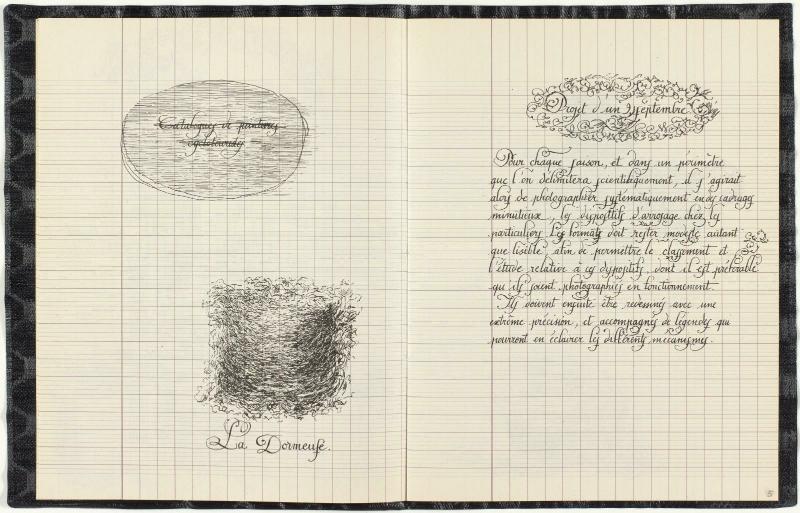 Catalogues de peintures
La Dormeuse.
Projet d'un 9 septembre
Pour chaque saison, et dans un périmètre
que l'on délimitera scientifiquement, il s'agirait
alors de photographier systématiquement en des cadrages
minutieux, les dispositifs d'arrosage chez les
particuliers. Les formats doit rester modeste autant
que lisible, afin de permettre le classement et
l'étude relative à ces dispositifs, dont il est préférable
qu'ils soient photographiés en fonctionnement.
Ils doivent ensuite être redessinés avec une
extrême précision, et accompagnés de légendes qui
pourront en éclairer les différents mécanismes.
5